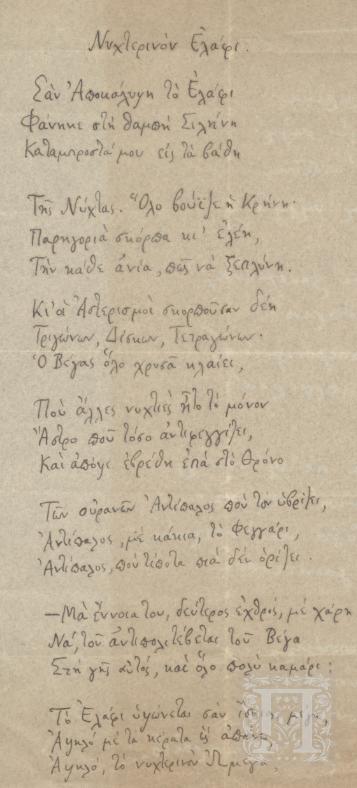 Νυχτερινὸν Ἐλάφι.
Σὰν Ἀποκάλυψη τὸ Ἐλάφι
Φάνηκε στὴ θαμπὴ Σελήνη
Καταμπροστά μου εἰς τὰ βάθη
Τῆς Νύχτας. Ὅλο βούϊζε ἡ Κρήνη·
Παρηγοριὰ σκόρπα κι' ἐλέη,
Τὴν κάθε ἀνία, πῶς νὰ ξεπλύνη.
Κι' οἱ Ἀστερισμοὶ σκορποῦσαν δέη
Τριγώνων, Δίσκων, Τετραγώνων·
Ὁ Βέγας ὅλο χρυσᾶ κλαίει,
Ποὺ ἄλλες νυχτιὲς ἦτο τὸ μόνον
Ἄστρο ποῦ τόσο ἀντιφεγγίζει,
Καὶ ἀπόψε ἑβρέθη ἐπὰ στὸ θρόνο
Τῶν οὐρανῶν Ἀντίπαλος ποῦ τὸν ὑβρίζει,
Ἀντίπαλος, μὲ κάκια, τὸ Φεγγάρι,
Ἀντίπαλος, ποὺ τίποτα πιὰ δὲν ὁρίζει.
—Μὰ ἔννοια του, δεύτερος ἐχθρός, μὲ χάρη
Νά, τοῦ ἀντιπολιτεύεται τοῦ Βέγα
Στὴ γῆς αὐτός, καὶ ὅλο πολὺ καμάρι:
Τὸ Ἐλάφι ὑψώνεται σὰν μέγα,
Ἀψηλό, μὲ τὰ κέρατα
Ἀψηλό, τὸ νυχτερινὸν Ὠμέγα.
Π